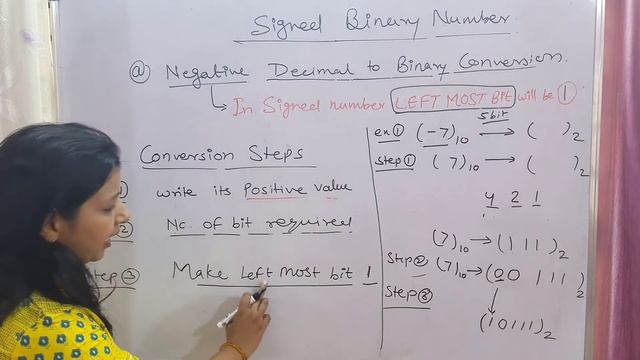 Signed Binary Number
@ Negative Decimal to Binary Conversion.
In Signed number LEFT MOST BIT will be 1
Conversion Steps
1
write its Positive value
2
No. of bit required
Step 3
Make left most bit 1
5bit
ex 1 (-7)10 → ( )2
Step 1 (7)10 → ( )2
4 2 1
(7)10 → (111)2
Step 2 (7)10 → (00111)2
Step 3
(10111)2